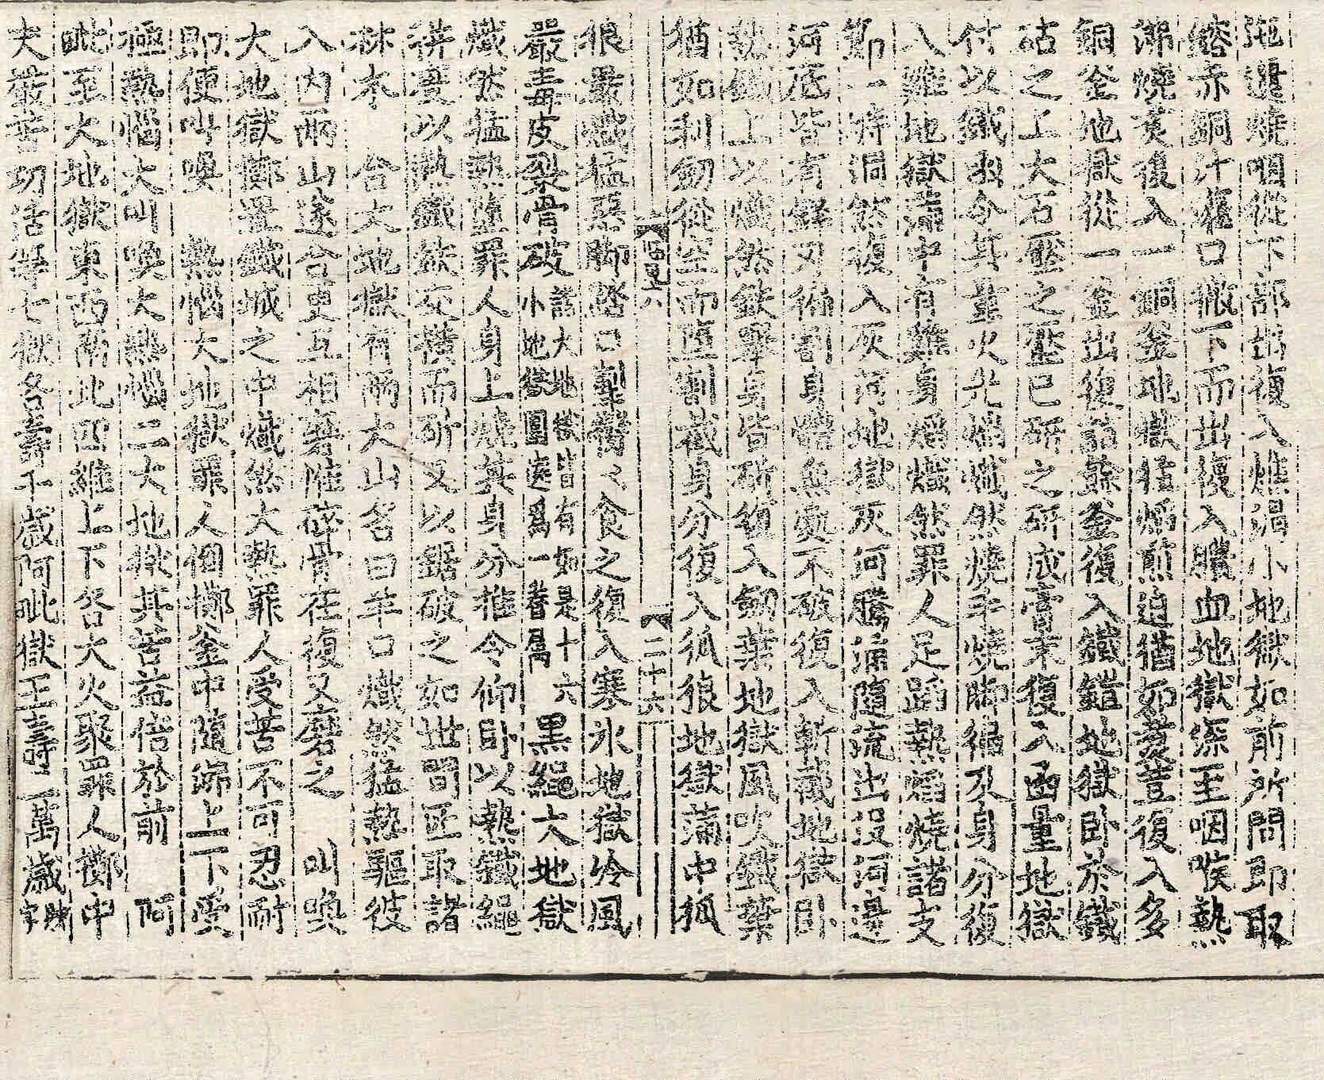 洟邊燒咽從下部出復入燋渴小地獄如前所問即取
鎔赤銅汁灌口徹下而出復入膿血地獄深至咽喉熱
沸燒炙復入一銅釜地獄猛焰煎迫猶如煮豆復入多
銅釜地獄從一釜出復詣餘釜復入鐵鎧地獄臥於鐵
砧之上大石壓之壓已研之研成膏末復入函量地獄
付以鐵函令其量火火焰熾然燒手燒脚徧及身分復
入雞地獄滿中有雞身焰熾然罪人足蹈熱焰燒諸支
節一時洞然復入灰河地獄灰河騰涌隨流出没河邊
河底皆有鋒刃徧割身體無處不破復入斬截地獄臥
熱鐵上以熾然鈇舉身皆斫復入劒葉地獄風吹鐵葉
猶如利劒從空而墮割截身分復入狐狼地獄滿中狐
二十六
狼嚴熾猛惡脚踏口掣臠々食之復入寒氷地獄冷風
嚴毒皮裂骨破 諸大地獄皆有如是十六小地獄圍遶爲一眷屬 黒繩大地獄
熾然猛熱墮罪人身上燒其身分推令仰臥以熱鐵繩
拼度以熱鐵鈇交橫而斫又以鋸破之如世間匠取諸
林木 合大地獄有兩大山名曰羊口熾然猛熱驅彼
入内兩山遂合更互相磨摧碎骨在復又磨之 叫喚
大地獄擲置鐵城之中熾然大熱罪人受苦不可忍耐
即便叫喚 熱惱大地獄罪人倒擲釜中隨沸上下受
極熱惱大叫喚大熱惱二大地獄其苦益倍於前 阿
毗至大地獄東西南北四維上下各大火聚罪人擲中
大嚴苦切活等七獄各壽千歲阿毗獄王壽一萬歲